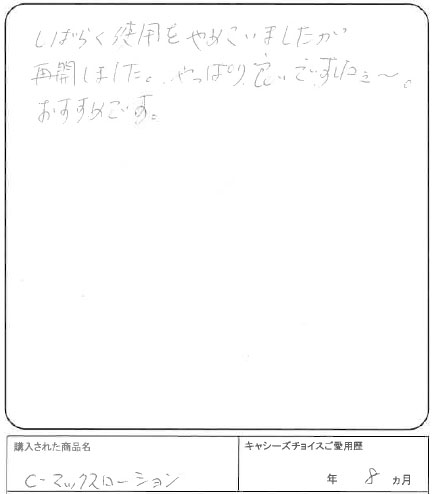 しばらく使用をやめていましたが
再開しました。やっぱり良いですねぇ～。
おすすめです。
購入された商品名
キャシーズチョイスご愛用歴
C-マックスローション
年 8 ヵ月